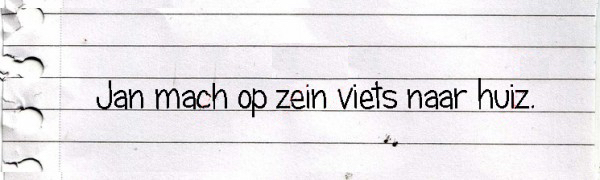 Jan mach op zein viets naar huiz.